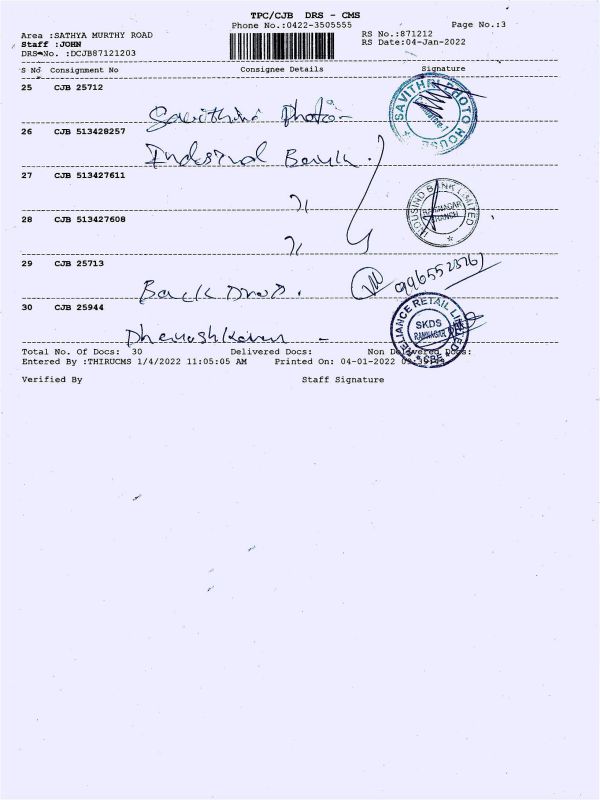 TPC/CJB DRS - CMS
Phone No.:0422-3505555
Page No.:3
Area :SATHYA MURTHY ROAD
RS No.:871212
Staff :JOHN
RS Date:04-Jan-2022
DRS No. :DCJB87121203
S No Consignment No Consignee Details Signature
25 CJB 25712
Savithri Photo
SAVITHRI PHOTO HOUSE
26 CJB 513428257
Indusind Bank
27 CJB 513427611
INDUSIND BANK LIMITED
RAMNAGAR
BRANCH
28 CJB 513427608
29 CJB 25713
Back Drop.
30 CJB 25944
RELIANCE RETAIL LIMITED
SKDS
RAMNAGAR
Total No. Of Docs: 30 Delivered Docs: Non Delivered Docs:
Entered By :THIRUCMS 1/4/2022 11:05:05 AM Printed On: 04-01-2022
Verified By Staff Signature